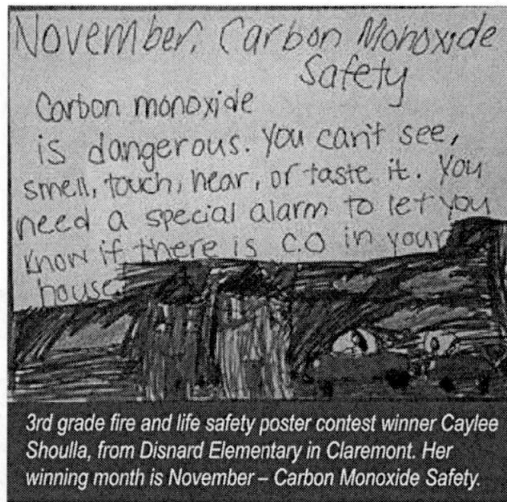 November. Carbon Monoxide
Safety
Carbon monoxide
is dangerous. You can't see,
smell, touch, hear, or taste it. You
need a special alarm to let you
know if there is C.O in your
house.
3rd grade fire and life safety poster contest winner Caylee
Shoulla, from Disnard Elementary in Claremont. Her
winning month is November – Carbon Monoxide Safety.